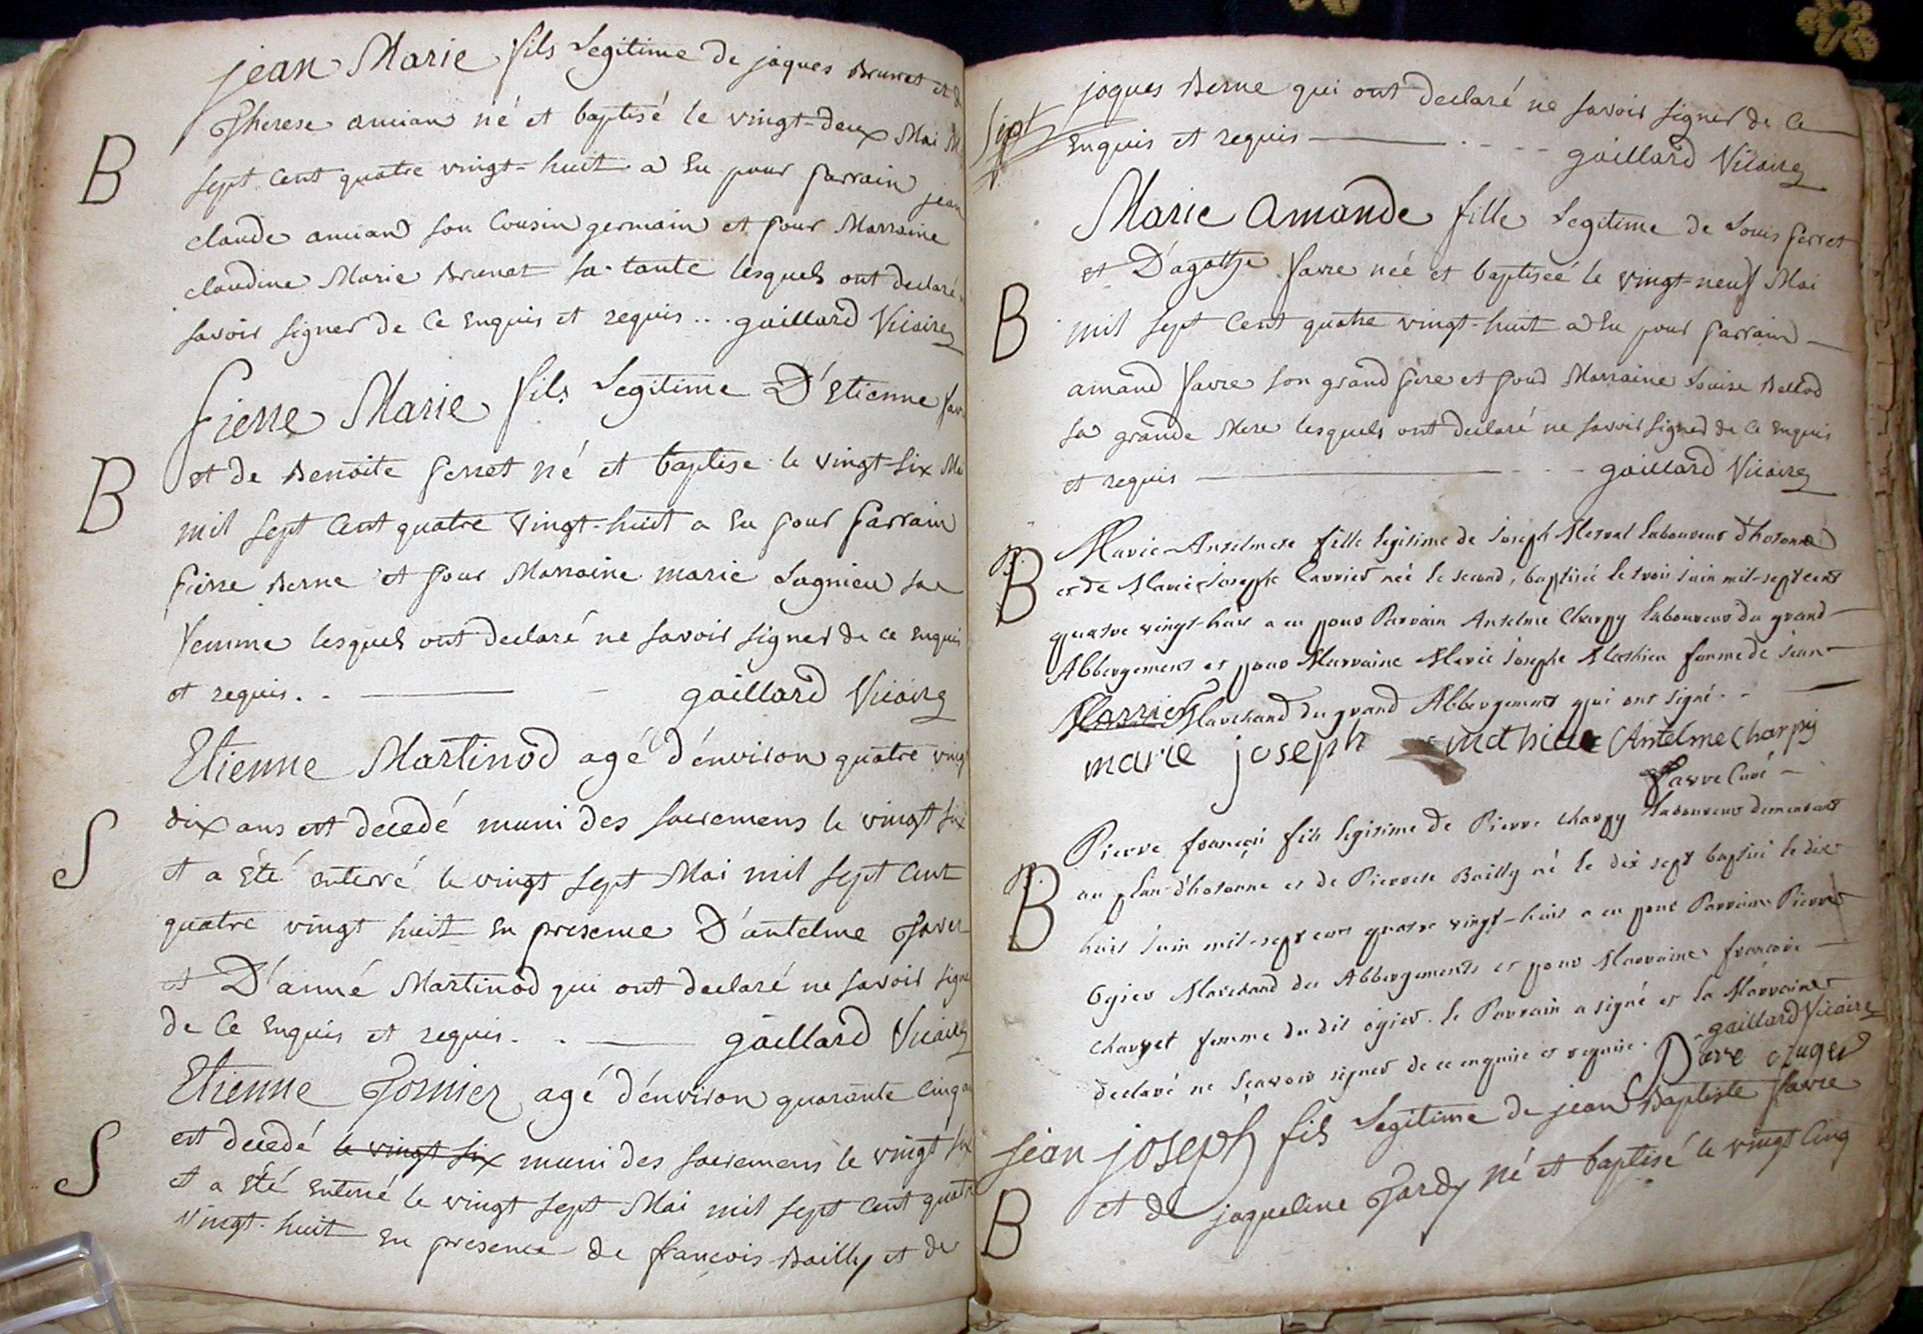 jean Marie fils Legitime de jaques Brunet et de
Therese amian né et baptisé le vingt-deux Mai
B
sept cent quatre vingt-huit a Eu pour parrain jean
claude amian son Cousin germain et pour Marraine
claudine Marie Brunet sa tante lesquels ont declaré
savoir signer de Ce Enquis et requis ... gaillard Vicaire
pierre Marie fils Legitime D'Etienne
B
et de Benoite perret né et baptise le vingt-six
mil sept Cent quatre vingt-huit a Eu pour parrain
pierre Berne et pour Marraine marie Lagnieu sa
femme lesquels ont declaré ne savoir signer de ce Enquis
et requis. - gaillard Vicaire
Etienne Martinod agé d'environ quatre vingt
dix ans est decedé muni des sacremens le vingt six
S
et a été enterré le vingt sept Mai mil sept Cent
quatre vingt huit En presence D'antelme
et D'aimé Martinod qui ont declaré ne savoir signer
de Ce Enquis et requis. . - gaillard Vicaire
Etienne agé d'environ quarante Cinq
est decedé le vingt six muni des sacremens le vingt six
S
et a été Enterré le vingt sept Mai mil sept Cent quatre
vingt-huit En presence de françois Bailly et de
jaques Berne qui ont declaré ne savoir signer de Ce
sept
Enquis et requis - - - - gaillard Vicaire
Marie amande fille Legitime de Louis perret
et D'agathe favre neé et baptiseé le vingt-neuf Mai
B
mil sept Cent quatre vingt-huit a Eu pour parrain
amand favre son grand pere et pour Marraine Louise Bellod
sa grande Mere lesquels ont declaré ne savoir signer de Ce Enquis
et requis - - - - gaillard Vicaire
Marie Antelmete fille legitime de Joseph Laboureur d'hotonne
B
et de Marie Josephe Carrier neé le second, baptiseé le trois Juin mil-sept cent
quatre vingt-huit a eu pour Parrain Antelme Charpy laboureur du grand
Abbergement et pour Marraine Marie Josephe Mathieu femme de Jean
Carrier Marchand du grand Abbergement qui ont signé. - -
marie joseph mathieu Antelme Charpy
favre Curé -
Pierre françois fils legitime de Pierre Charpy laboureur demeurant
au plan d'hotonne et de Pierrete Bailly né le dix sept baptisé le dix
B
huit Juin mil-sept cent quatre vingt-huit a eu pour Parrain Pierre
Ogier Marchand des Abbergements et pour Marraine francoise
Charvet femme du dit ogier. le Parrain a signé et la Marraine
declaré ne sçavoir signer de ce enquise et requise. gaillard Vicaire
jean joseph fils Legitime de jean Baptiste favre
et de jaqueline Tardy né et baptisé le vingt Cinq
B